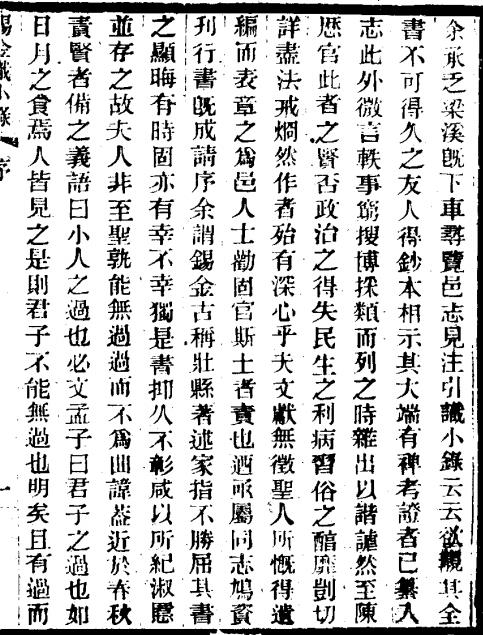 余承乏梁溪旣下車尋覽邑志見注引識小錄云云欲觀其全
書不可得久之友人得鈔本相示其大端有裨考證者已纂入
志此外微言軼事窮搜博採類而列之時雜出以諧謔然至陳
歷官此者之賢否政治之得失民生之利病習俗之醕靡剴切
詳盡法戒燗然作者殆有深心乎夫文獻無徵聖人所慨得遺
編而表章之爲邑人士勸固官斯土者責也迺亟屬同志鳩資
刋行書旣成請序余謂錫金古稱壯縣著述家指不勝屈其書
之顯晦有時固亦有幸不幸獨是書抑久不彰咸以所紀淑慝
並存之故夫人非至聖孰能無過過而不爲曲諱葢近於春秋
責賢者備之義語曰小人之過也必文孟子曰君子之過也如
日月之食焉人皆見之是則君子不能無過也明矣且有過而
錫金識小錄 序 一